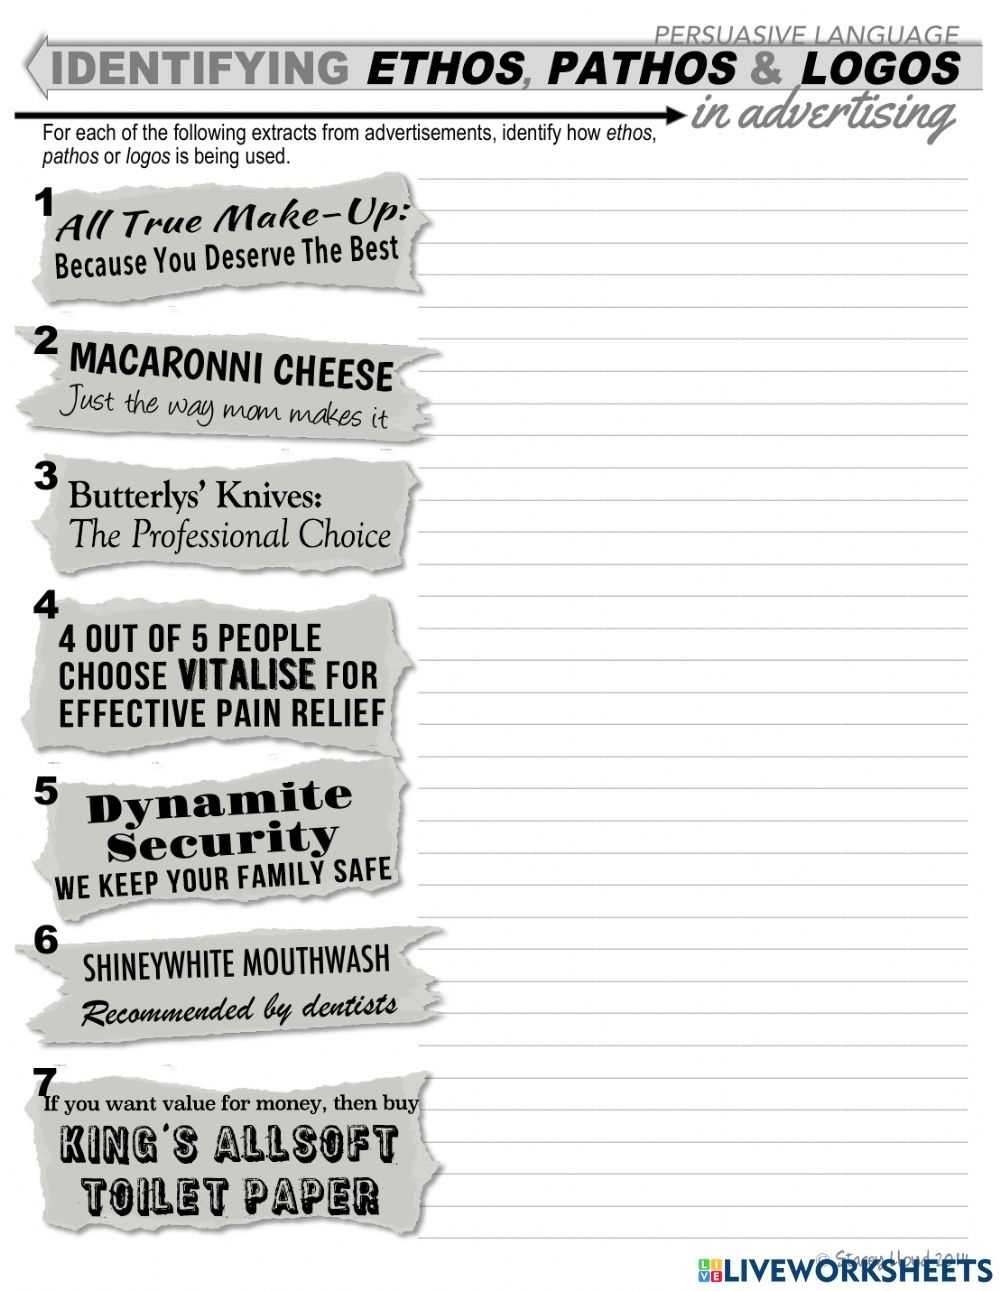 PERSUASIVE LANGUAGE
IDENTIFYING ETHOS, PATHOS & LOGOS
in advertising
For each of the following extracts from advertisements, identify how ethos,
pathos or logos is being used.
1
All True Make-Up:
Because You Deserve The Best
2
MACARONNI CHEESE
Just the way mom makes it
3
Butterlys' Knives:
The Professional Choice
4
4 OUT OF 5 PEOPLE
CHOOSE VITALISE FOR
EFFECTIVE PAIN RELIEF
5
Dynamite
Security
WE KEEP YOUR FAMILY SAFE
6
SHINEYWHITE MOUTHWASH
Recommended by dentists
7
If you want value for money, then buy
KING'S ALLSOFT
TOILET PAPER
© Stacey Lloyd 2014
LIVEWORKSHEETS